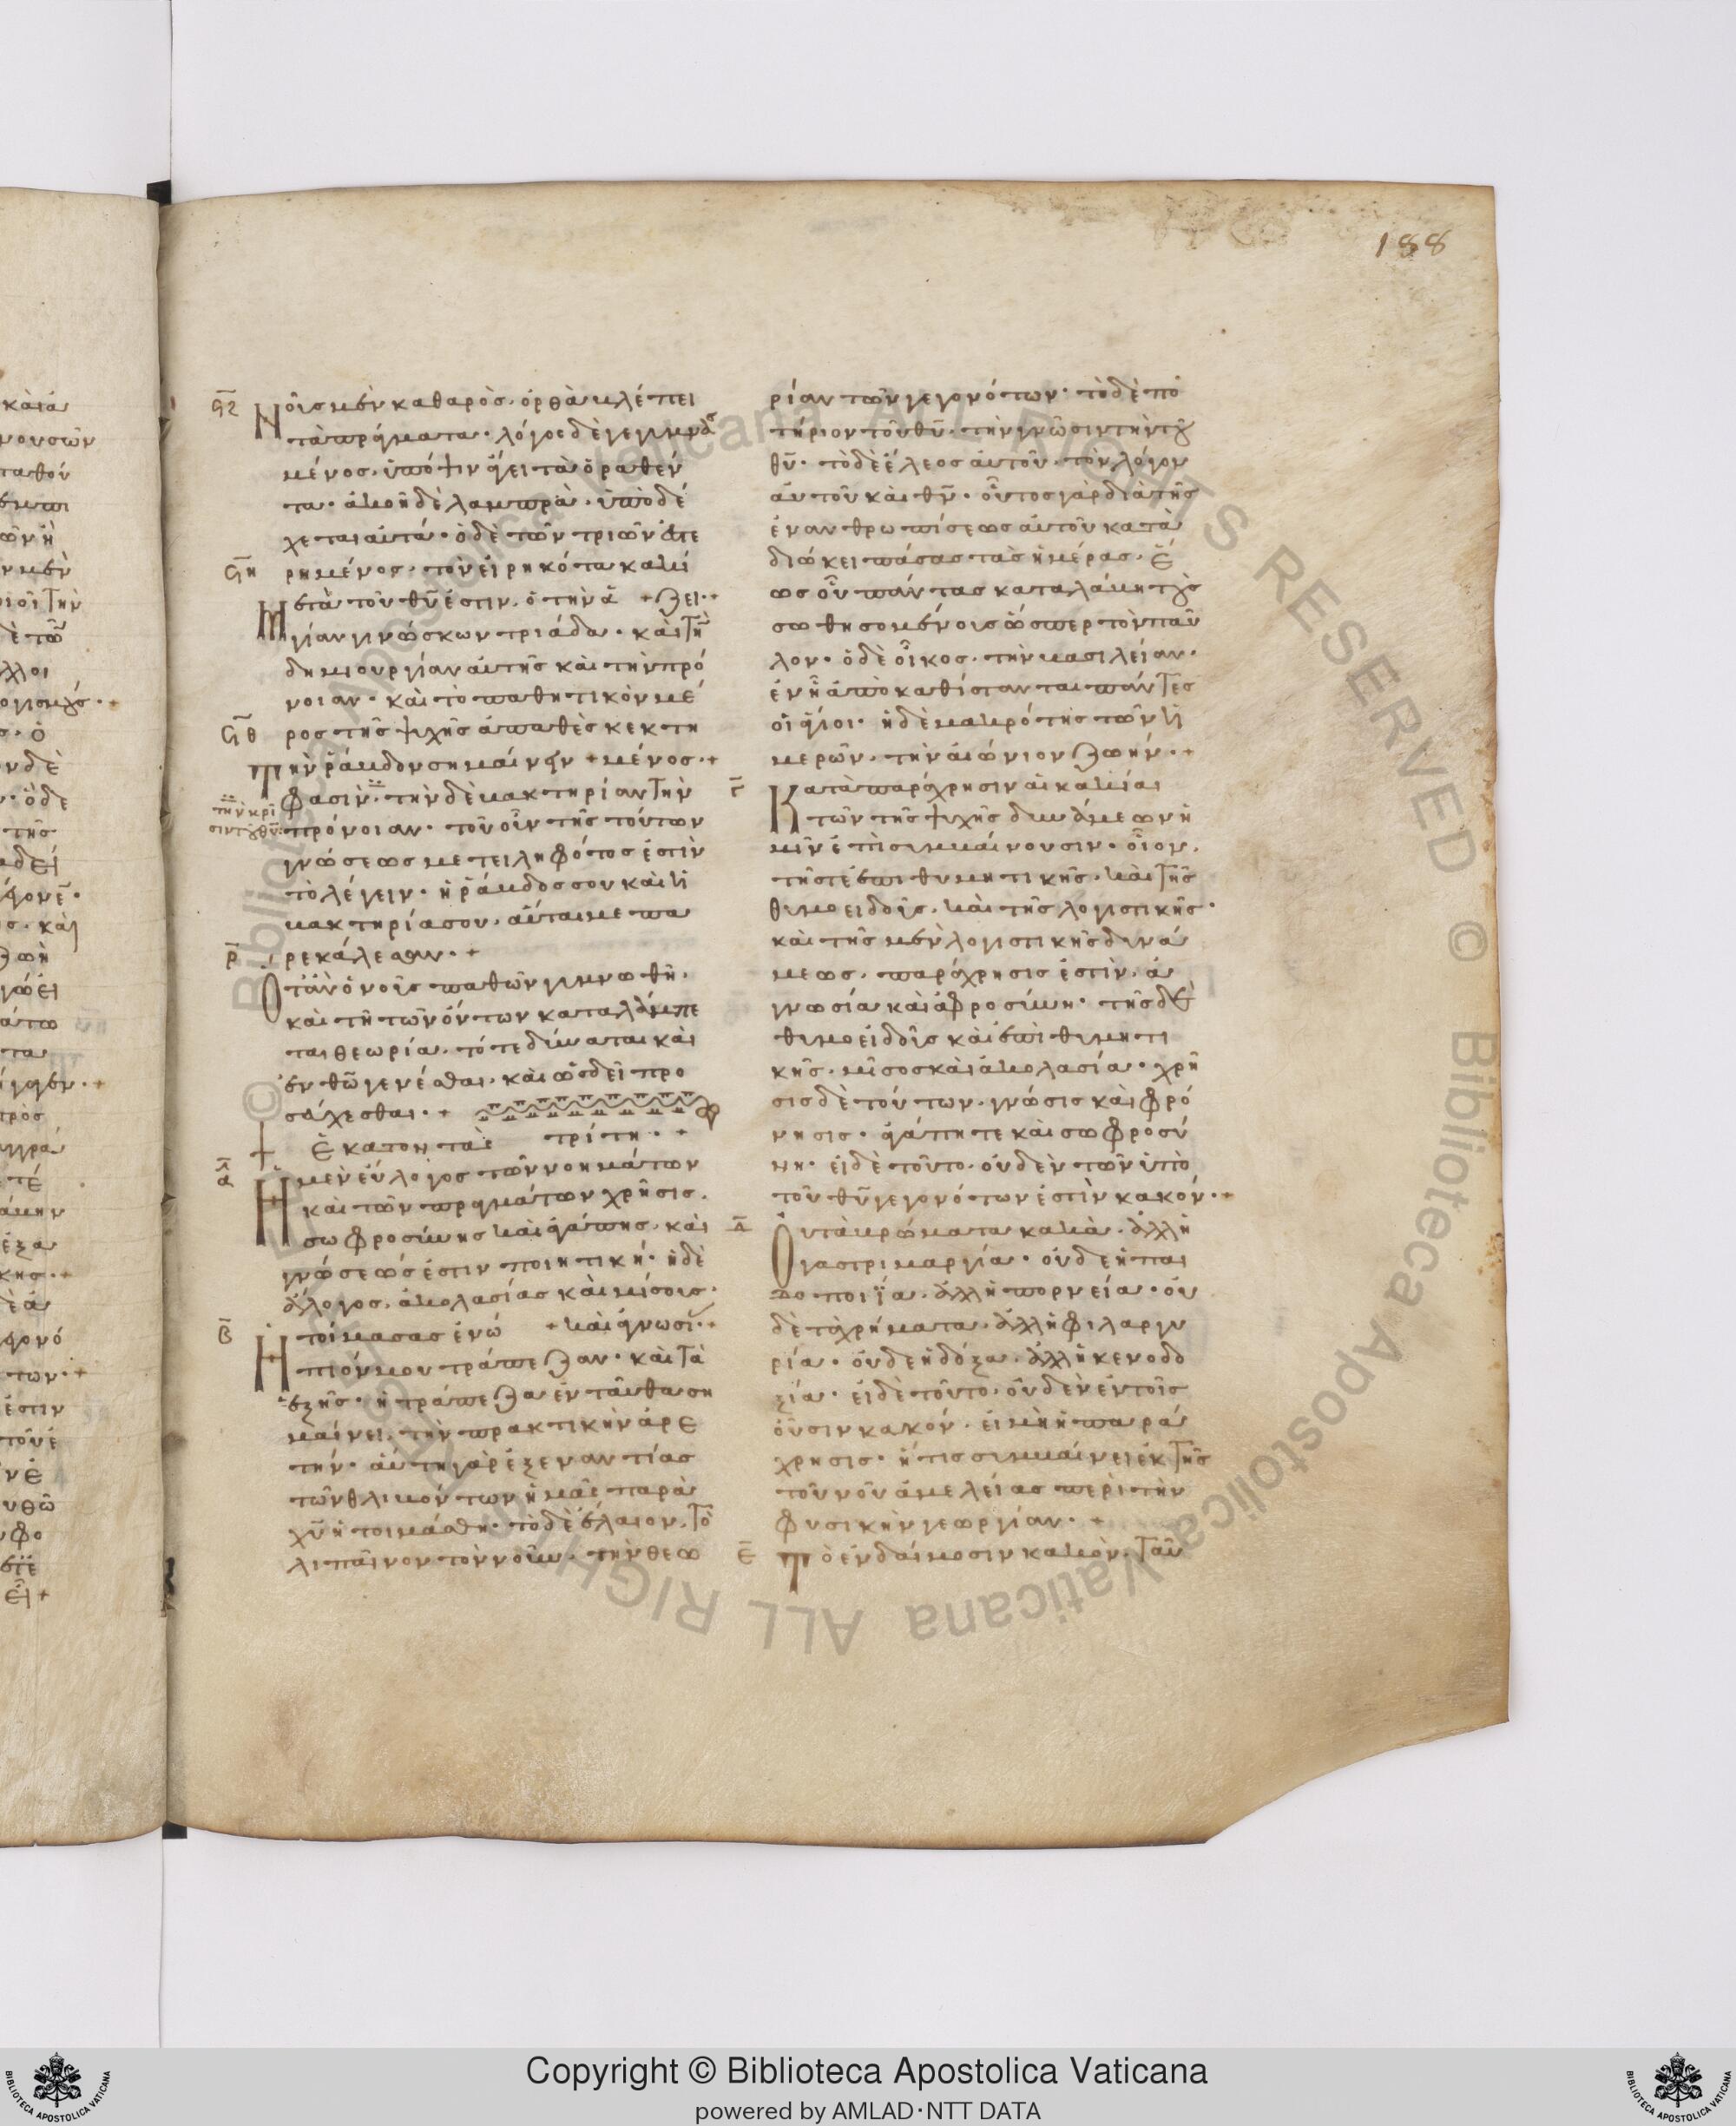 188
ϟζ Νοῦς μὲν καθαρὸς· ὀρθὰ βλέπει
τὰ πράγματα· λόγος δὲ γεγυμνασ
μένος· ὑπόψιν ἄγει τὰ ὁραθέν
τα· ἀκοὴ δὲ λαμπρὰ· ὑποδέ
χεται αὐτά· ὁ δὲ τῶν τριῶν ἐστε
ρημένος· τὸν εἰρηκότα κακί
ζει·+
ϟη Μετὰ τοῦ θῦ ἐστιν· ὁ τὴν ἁ
γίαν γινώσκων τριάδα· καὶ τὴν
δημιουργίαν αὐτῆς καὶ τὴν πρό
νοιαν· καὶ τὸ παθητικὸν μέ
ρος τῆς ψυχῆς ἀπαθὲς κεκτη
μένος·+
ϟθ Τὴν ῥάβδον σημαίνειν
φασὶν· τὴν δὲ βακτηρίαν τὴν
τὴν κρί
σιν τοῦ θῦ
πρόνοιαν· τοῦ οὖν τῆς τούτων
γνώσεως μετειληφότος ἐστὶν
τὸ λέγειν· ἡ ῥάβδος σου καὶ ἡ
βακτηρία σου· αὗται με πα
ρεκάλεσαν·+
ρ Ὅταν ὁ νοῦς παθῶν γυμνωθῆ·
καὶ τῆ τῶν ὄντων καταλάμπε
ται θεωρία· τότε δύναται καὶ
ἐν θῶ γενέσθαι· καὶ ὡς δεῖ προ
σεύχεσθαι·+
Ἑκατοντὰς τρίτη·+
α Ἡ μὲν εὔλογος τῶν νοημάτων
καὶ τῶν πραγμάτων χρῆσις·
σωφροσύνης καὶ ἀγάπης· καὶ
γνώσεώς ἐστιν ποιητική· ἡ δὲ
ἄλογος· ἀκολασίας καὶ μίσους·
+ καὶ ἀγνωσί·+
β Ἡτοίμασας ἐνώ
πιόν μου τράπεζαν· καὶ τὰ
ἑξῆς· ἡ τράπεζα ἐνταῦθα ση
μαίνει· τὴν πρακτικὴν ἀρε
τήν· αὐτὴ γὰρ ἐξεναντίας
τῶν θλιβόντων ἡμᾶς παρὰ
χῦ ἡτοιμάσθη· τὸ δὲ ἔλαιον· τὸ
λιπαῖνον τὸν νοῦν· τὴν θεω
ρίαν τῶν γεγονότων· τὸ δὲ πο
τήριον τοῦ θῦ· τὴν γνῶσιν τὴν τοῦ
θῦ· τὸ δὲ ἔλεος αὐτοῦ· τὸν λόγον
αὐτοῦ καὶ θν· οὗτος γὰρ διὰ τῆς
ἐνανθρωπίσεως αὐτοῦ κατα
διώκει πάσας τὰς ἡμέρας· ἕ
ως οὗ πάντας καταλάβη τοὺς
σωθησομένους ὥσπερ τὸν παῦ
λον· ὁ δὲ οἶκος· τὴν βασιλείαν·
ἐν ἧ ἀποκαθίστανται πάντες
οἱ ἅγιοι· ἡ δὲ μακρότης τῶν ἡ
μερῶν· τὴν αἰώνιον ζωήν·+
γ Κατὰ παράχρησιν αἱ κακίαι
τῶν τῆς ψυχῆς δυνάμεων ἡ
μῖν ἐπισυμβαίνουσιν· οἷον·
τῆς τε ἐπιθυμητικῆς· καὶ τῆς
θυμοειδοῦς· καὶ τῆς λογιστικῆς·
καὶ τῆς μὲν λογιστικῆς δυνά
μεως· παράχρησις ἐστὶν· ἀ
γνωσία καὶ ἀφροσύνη· τῆς δὲ
θυμοειδοῦς καὶ ἐπιθυμητι
κῆς· μῖσος καὶ ἀκολασία· χρῆ
σις δὲ τούτων· γνῶσις καὶ φρό
νησις· ἀγάπη τε καὶ σωφροσύ
νη· εἰ δὲ τοῦτο· οὐδὲν τῶν ὑπὸ
τοῦ θῦ γεγονότων ἐστὶν κακόν·+
δ Οὐ τὰ βρώματα κακὰ· ἀλλ ἡ
γαστριμαργία· οὐδὲ ἡ παι
δοποιΐα· ἀλλ ἡ πορνεία· οὐ
δὲ τὰ χρήματα· ἀλλ ἡ φιλαργυ
ρία· οὐδὲ ἡ δόξα· ἀλλ ἡ κενοδο
ξία· εἰ δὲ τοῦτο· οὐδὲν ἐν τοῖς
οὖσιν κακόν· εἰ μὴ ἡ παρά
χρησις· ἥτις συμβαίνει ἐκ τῆς
τοῦ νοῦ ἀμελείας περὶ τὴν
φυσικὴν γεωργίαν·+
ε Τὸ ἐν δαίμοσιν κακὸν· ταῦ
Copyright © Biblioteca Apostolica Vaticana
powered by AMLAD·NTT DATA